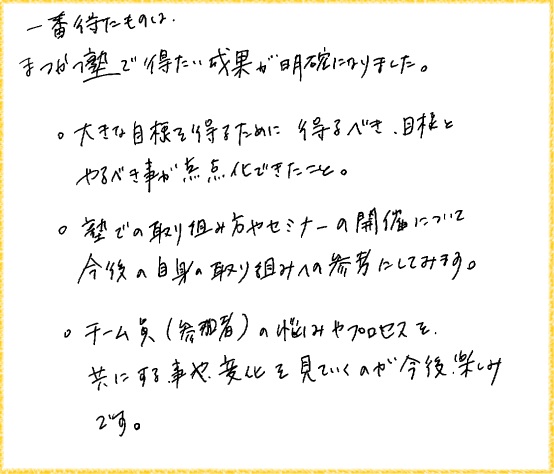 一番得たものは、
まつがつ塾で得たい成果が明確になりました。
。大きな目標を得るために得るべき、目標と
やるべき事が点点化できたこと。
。塾での取り組み方やセミナーの開催について
今後の自身の取り組みへの参考にしてみます。
。チーム員（参加者）の悩みやプロセスを、
共にする事や、変化を見ていくのが今後、楽しみ
です。